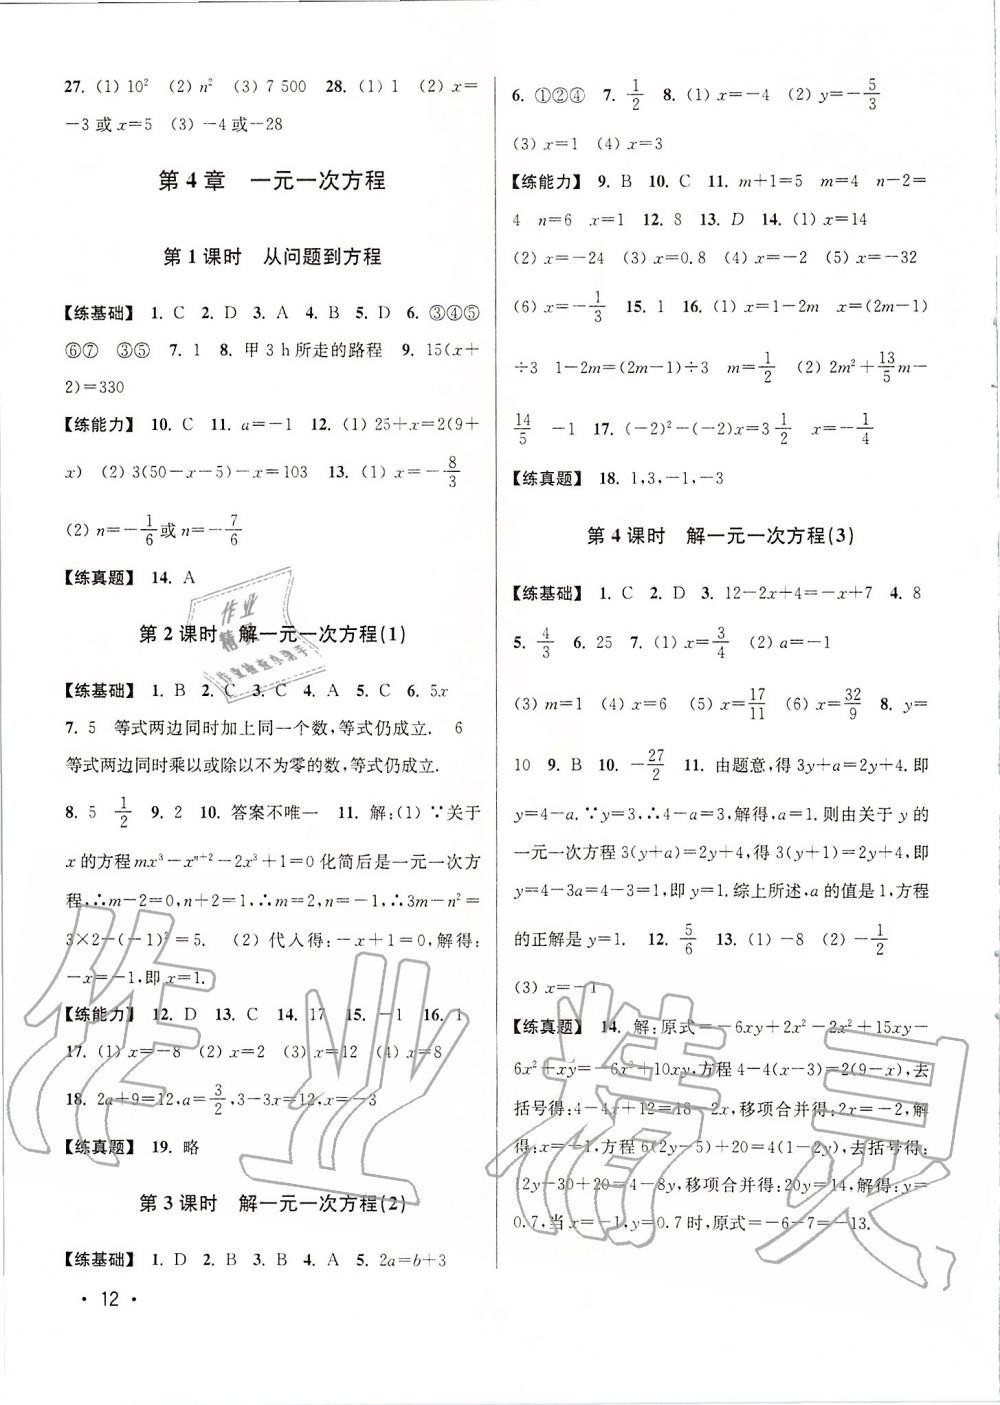 27. (1) 10² (2) n² (3) 7 500 28. (1) 1 (2) x=
-3或x=5 (3) -4或-28
第4章 一元一次方程
第1课时 从问题到方程
【练基础】 1. C 2. D 3. A 4. B 5. D 6. ③④⑤
⑥⑦ ③⑤ 7. 1 8. 甲3 h所走的路程 9. 15(x+
2)=330
【练能力】 10. C 11. a=-1 12. (1) 25+x=2(9+
x) (2) 3(50-x-5)-x=103 13. (1) x=-8/3
(2) n=-1/6或n=-7/6
【练真题】 14. A
第2课时 解一元一次方程(1)
【练基础】 1. B 2. C 3. C 4. A 5. C 6. 5x
7. 5 等式两边同时加上同一个数,等式仍成立. 6
等式两边同时乘以或除以不为零的数,等式仍成立.
8. 5 1/2 9. 2 10. 答案不唯一 11. 解:(1) ∵关于
x的方程mx³-xⁿ⁺²-2x³+1=0化简后是一元一次方
程,∴m-2=0,n+2=1,解得:m=2,n=-1,∴3m-n²=
3×2-(-1)²=5. (2) 代入得:-x+1=0,解得:
-x=-1,即x=1.
【练能力】 12. D 13. C 14. 17 15. -1 16. 1
17. (1) x=-8 (2) x=2 (3) x=12 (4) x=8
18. 2a+9=12,a=3/2,3-3x=12,x=-3
【练真题】 19. 略
第3课时 解一元一次方程(2)
【练基础】 1. D 2. B 3. B 4. A 5. 2a=b+3
· 12 ·
6. ①②④ 7. 1/2 8. (1) x=-4 (2) y=-5/3
(3) x=1 (4) x=3
【练能力】 9. B 10. C 11. m+1=5 m=4 n-2=
4 n=6 x=1 12. 8 13. D 14. (1) x=14
(2) x=-24 (3) x=0.8 (4) x=-2 (5) x=-32
(6) x=-1/3 15. 1 16. (1) x=1-2m x=(2m-1)
÷3 1-2m=(2m-1)÷3 m=1/2 (2) 2m²+13/5m-
14/5 -1 17. (-2)²-(-2)x=3 1/2 x=-1/4
【练真题】 18. 1,3,-1,-3
第4课时 解一元一次方程(3)
【练基础】 1. C 2. D 3. 12-2x+4=-x+7 4. 8
5. 4/3 6. 25 7. (1) x=3/4 (2) a=-1
(3) m=1 (4) x=6 (5) x=17/11 (6) x=32/9 8. y=
10 9. B 10. -27/2 11. 由题意,得3y+a=2y+4.即
y=4-a.∵y=3,∴4-a=3,解得,a=1.则由关于y的
一元一次方程3(y+a)=2y+4,得3(y+1)=2y+4,即
y=4-3a=4-3=1,即y=1.综上所述,a的值是1,方程
的正解是y=1. 12. 5/6 13. (1) -8 (2) -1/2
(3) x=-1
【练真题】 14. 解:原式=-6xy+2x²-2x²+15xy-
6x²+xy=-6x²+10xy,方程4-4(x-3)=2(9-x),去
括号得:4-4x+12=18-2x,移项合并得:2x=-2,解
得:x=-1,方程6(2y-5)+20=4(1-2y),去括号得:
12y-30+20=4-8y,移项合并得:20y=14,解得:y=
0.7,当x=-1,y=0.7时,原式=-6-7=-13.
作业精灵
作业
精灵
作业检查小助手